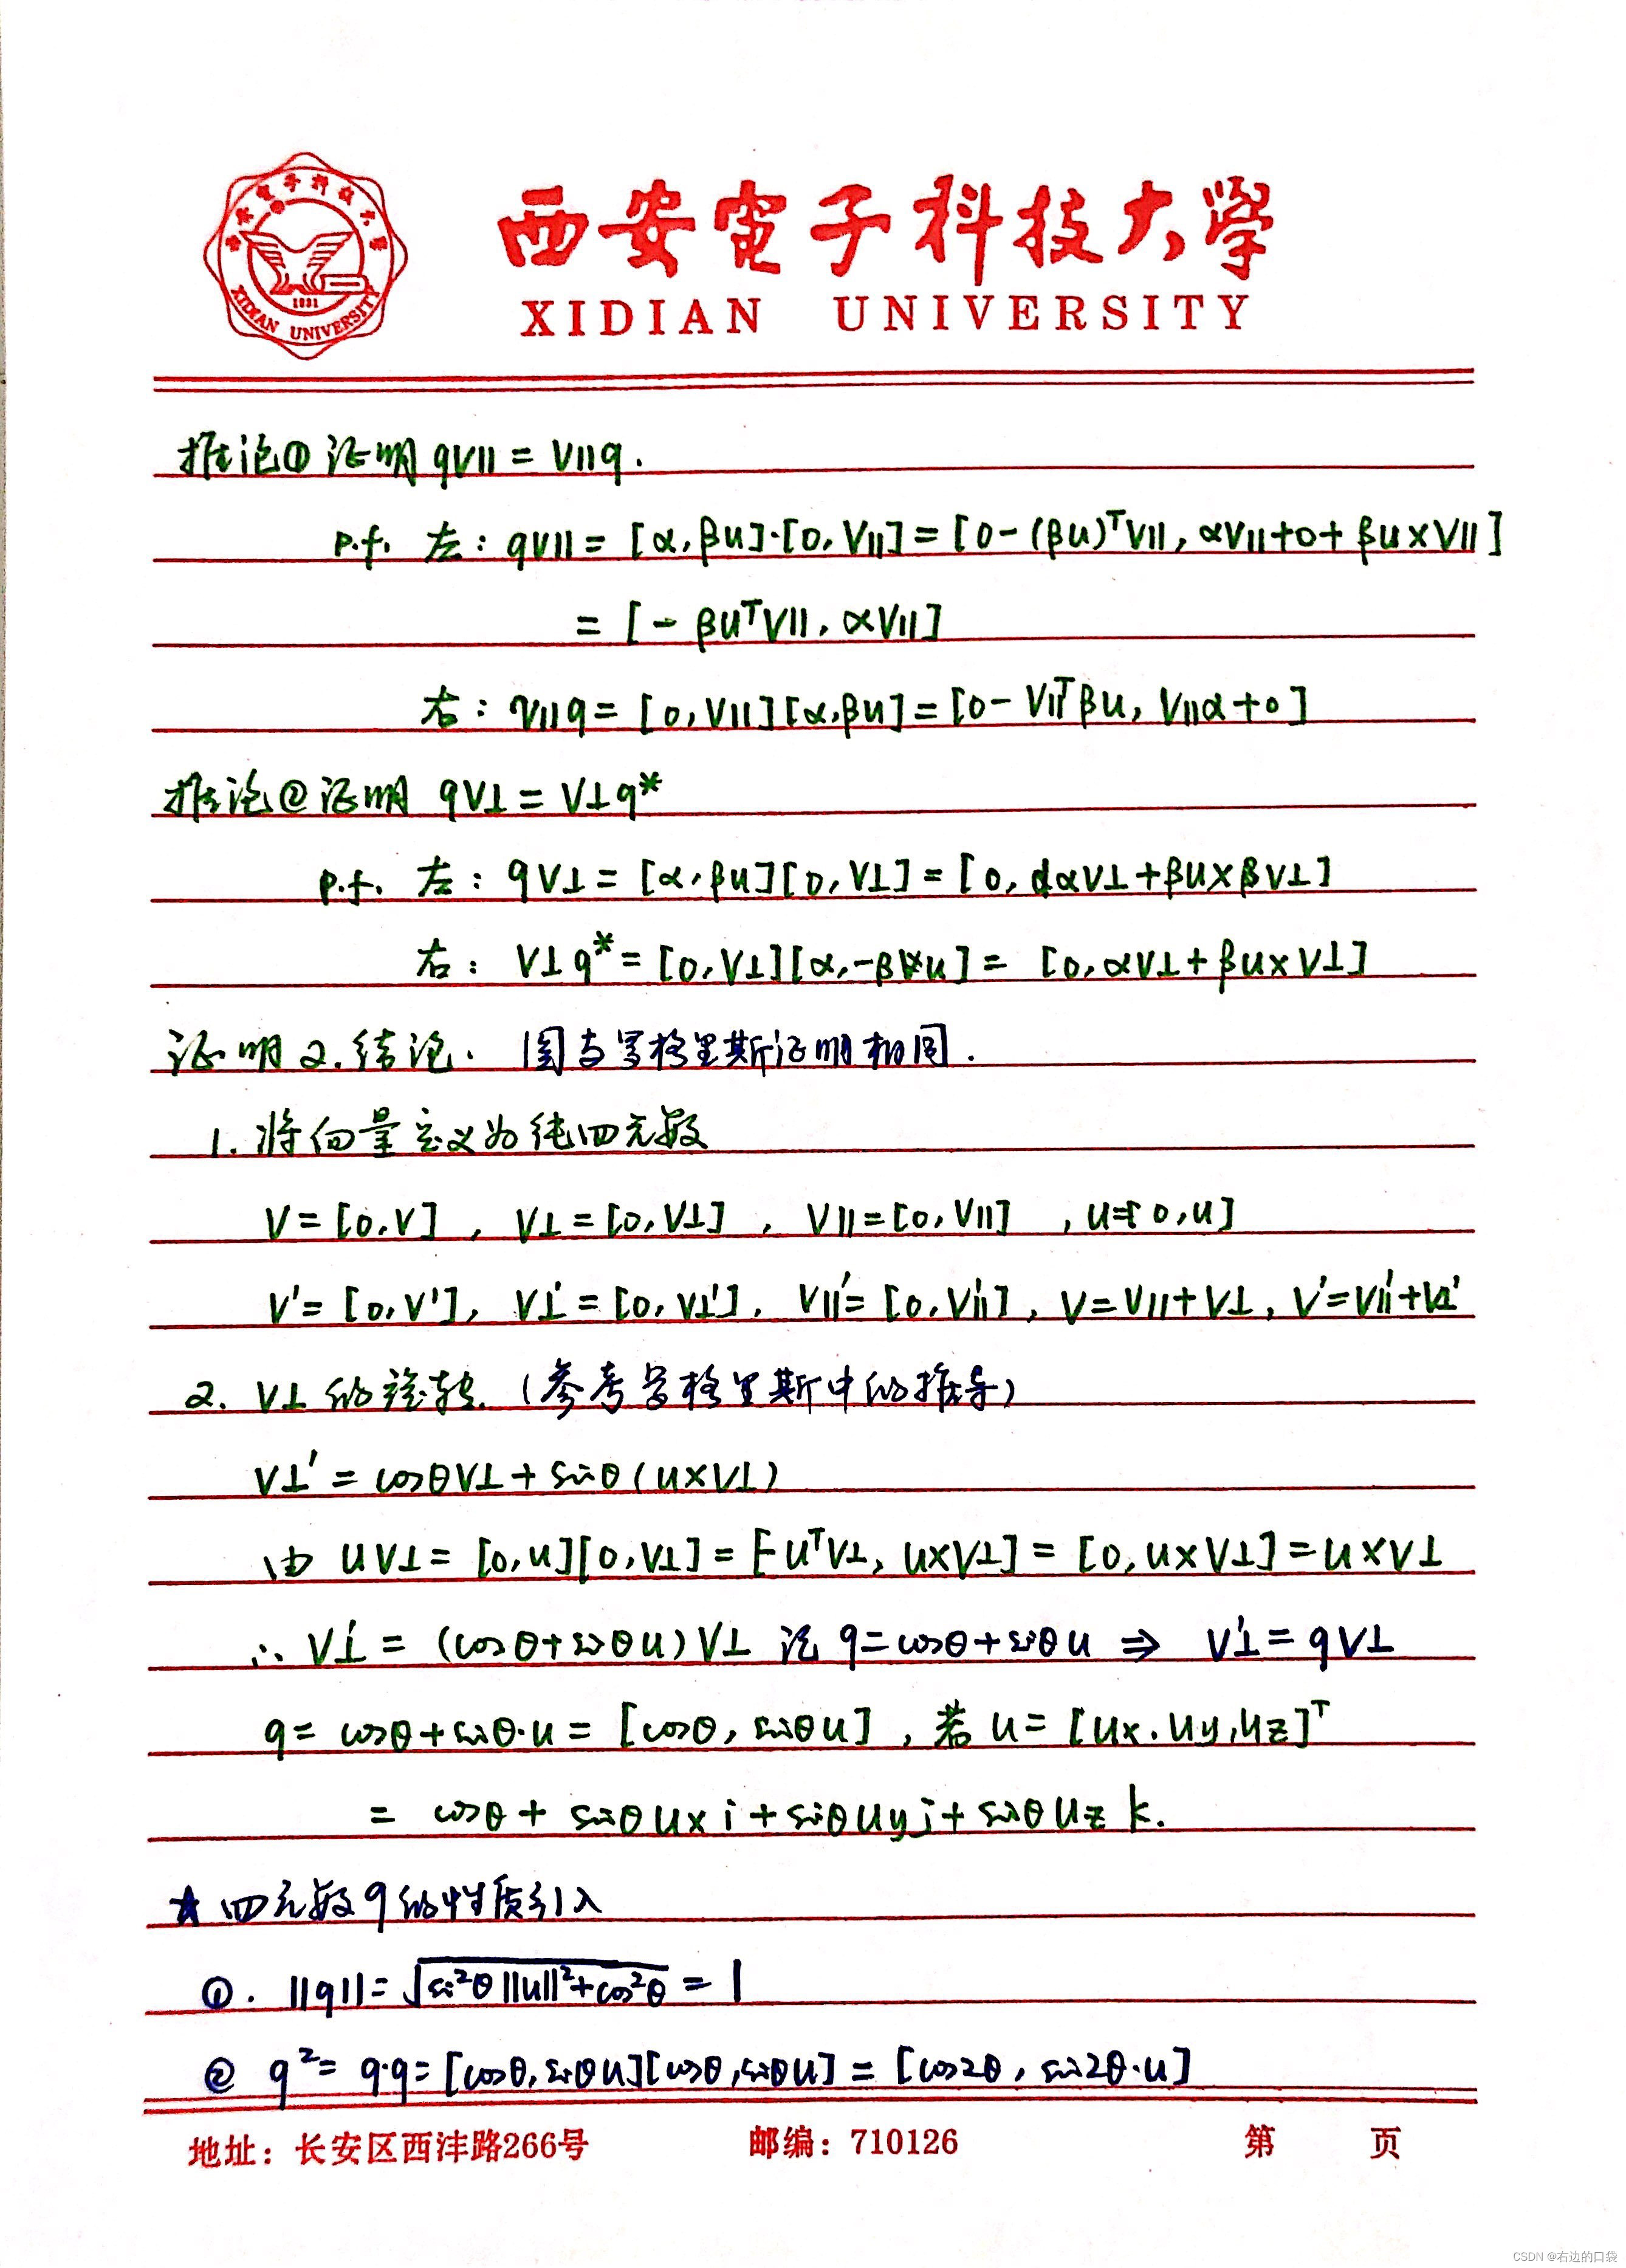 西安電子科技大學
XIDIAN UNIVERSITY
西安電子科技大學
1931
XIDIAN UNIVERSITY
推论① 证明 qV∥ = V∥q.
p.f. 左: qV∥ = [α, βu]·[0, V∥] = [0-(βu)ᵀV∥, αV∥+0+βu×V∥]
= [-βuᵀV∥, αV∥]
右: V∥q = [0, V∥][α, βu] = [0-V∥ᵀβu, V∥α+0]
推论② 证明 qV⊥ = V⊥q*
p.f. 左: qV⊥ = [α, βu][0, V⊥] = [0, αV⊥+βu×βV⊥]
右: V⊥q* = [0, V⊥][α, -βu] = [0, αV⊥+βu×V⊥]
证明2. 结论. 图与罗格里斯证明相同.
1. 将向量定义为纯四元数
V=[0,V] , V⊥=[0,V⊥] , V∥=[0,V∥] , u=[0,u]
V'=[0,V'], V⊥'=[0,V⊥'], V∥'=[0,V∥'], V=V∥+V⊥, V'=V∥'+V⊥'
2. V⊥的旋转. (参考罗格里斯中的推导)
V⊥' = cosθV⊥+sinθ(u×V⊥)
由 uV⊥ = [0,u][0,V⊥] = [-uᵀV⊥, u×V⊥] = [0, u×V⊥] = u×V⊥
∴ V⊥' = (cosθ+sinθu)V⊥ 记 q=cosθ+sinθu ⇒ V⊥' = qV⊥
q = cosθ+sinθ·u = [cosθ, sinθu] , 若 u = [ux, uy, uz]ᵀ
= cosθ + sinθuxi + sinθuyj + sinθuzk.
★ 四元数q的性质引入
①. ||q|| = √(sin²θ||u||²+cos²θ) = 1
② q² = q·q = [cosθ, sinθu][cosθ, sinθu] = [cos2θ, sin2θ·u]
地址: 长安区西沣路266号 邮编: 710126 第 页
CSDN @右边的口袋